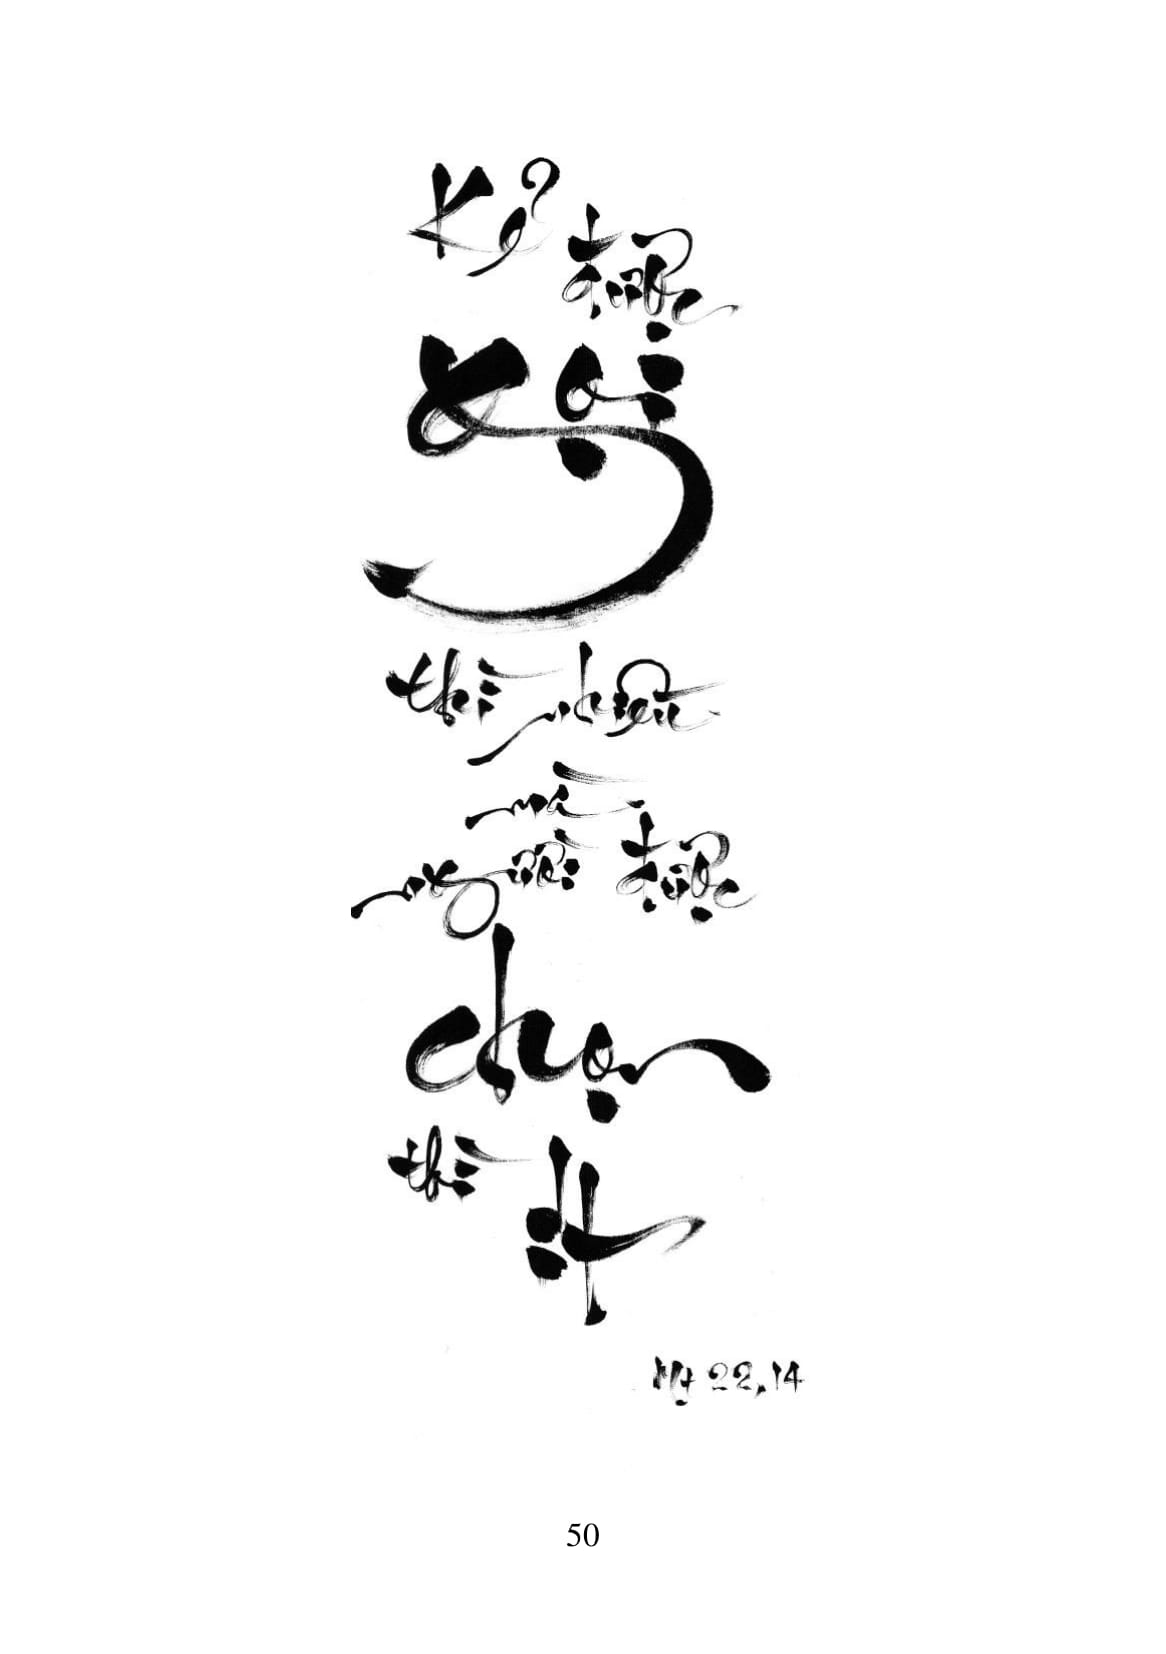 Kẻ được
gọi
thì nhiều
mà
người được
chọn
thì ít
Mt 22,14
50